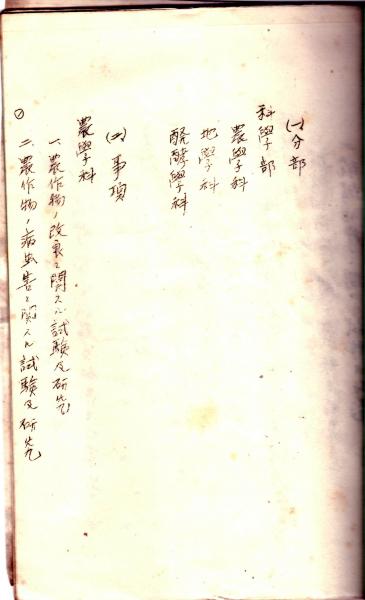 (一)分部
科學部
農學科
地學科
醗酵學科
(二)事項
農學科
一、農作物ノ改良ニ関スル試験及研究
二、農作物ノ病虫害ニ関スル試験及研究